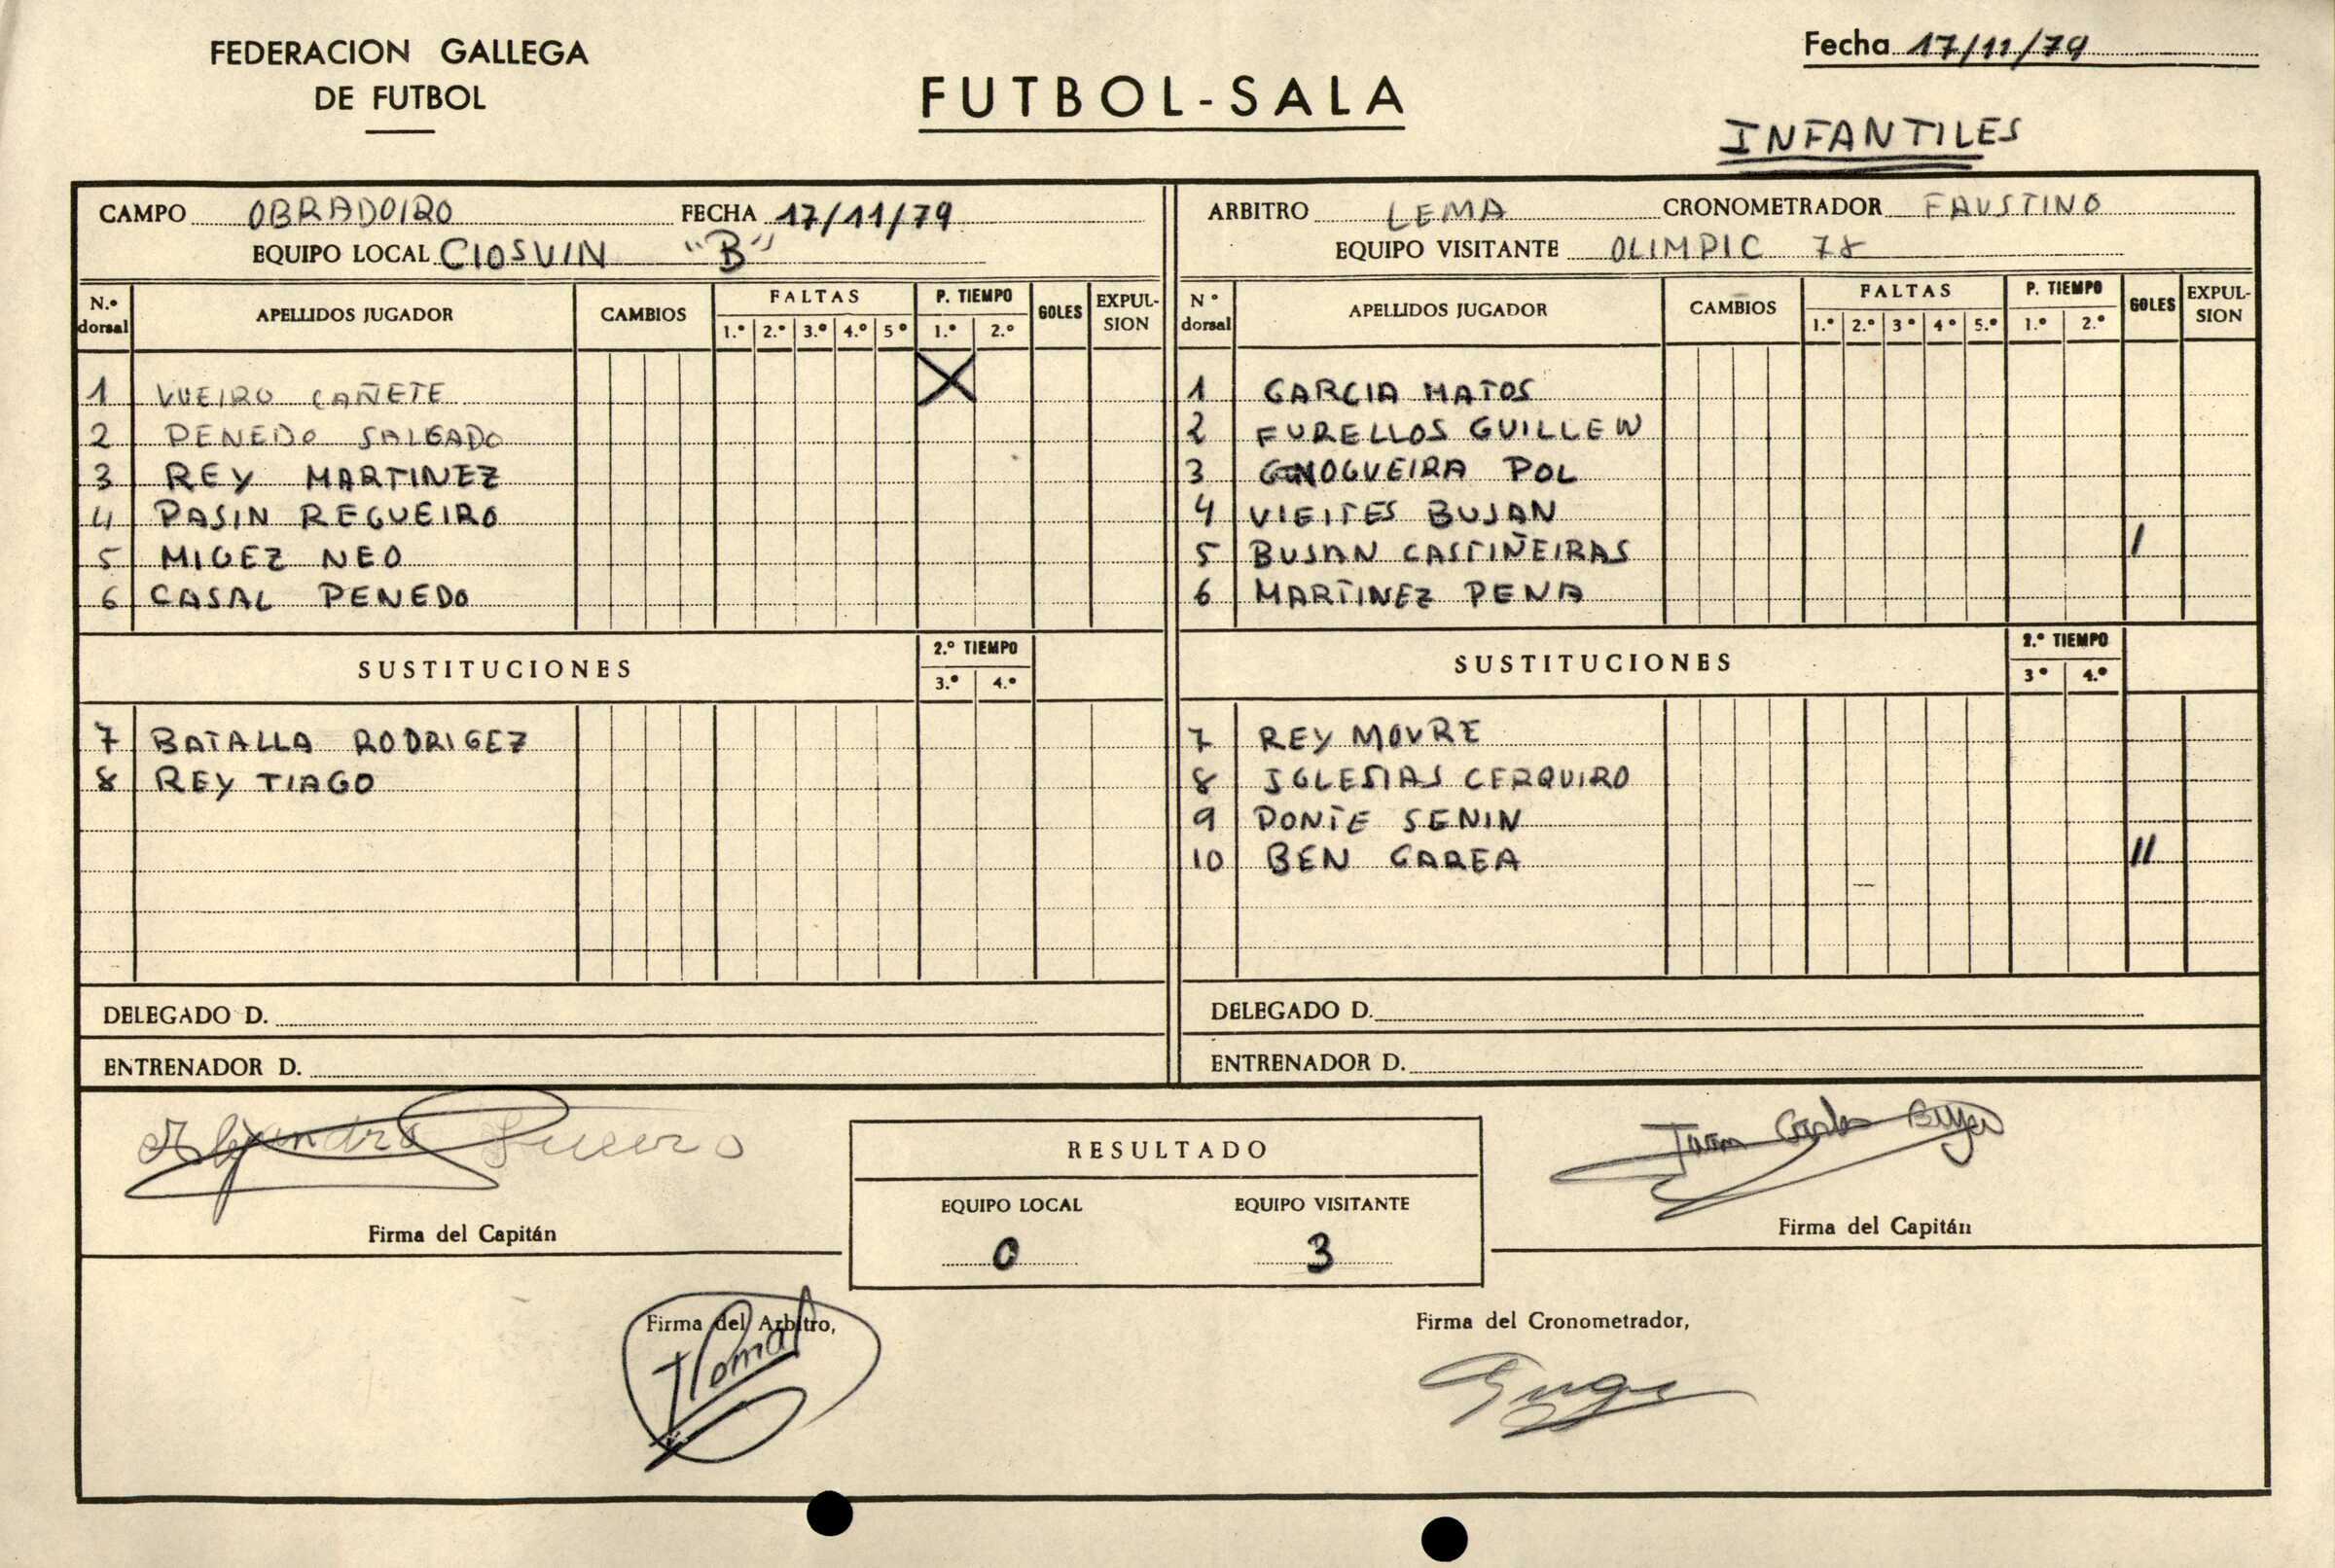 FEDERACION GALLEGA
DE FUTBOL
FUTBOL-SALA
Fecha 17/11/79
INFANTILES
CAMPO OBRADOIRO FECHA 17/11/79
EQUIPO LOCAL CIOSVIN "B"
N.º dorsal APELLIDOS JUGADOR CAMBIOS FALTAS 1.º 2.º 3.º 4.º 5º P. TIEMPO 1.º 2.º GOLES EXPULSION
1 CAÑETE X
2 PENEDO SALGADO
3 REY MARTINEZ
4 PASIN REGUEIRO
5 MIGEZ NEO
6 CASAL PENEDO
SUSTITUCIONES 2.º TIEMPO 3.º 4.º
7 BATALLA RODRIGEZ
8 REY TIAGO
DELEGADO D.
ENTRENADOR D.
ARBITRO LEMA CRONOMETRADOR FAUSTINO
EQUIPO VISITANTE OLIMPIC 78
Nº dorsal APELLIDOS JUGADOR CAMBIOS FALTAS 1.º 2.º 3º 4º 5.º P. TIEMPO 1.º 2.º GOLES EXPULSION
1 GARCIA MATOS
2 FURELLOS GUILLEN
3 NOGUEIRA POL
4 VIEITES BUJAN
5 BUJAN CASTIÑEIRAS I
6 MARTINEZ PENA
SUSTITUCIONES 2.º TIEMPO 3º 4.º
7 REY MOURE
8 IGLESIAS CERQUIRO
9 PONTE SENIN
10 BEN GAREA II
DELEGADO D.
ENTRENADOR D.
Alejandro
Firma del Capitán
RESULTADO
EQUIPO LOCAL EQUIPO VISITANTE
0 3
Juan Carlos
Firma del Capitán
Firma del Arbitro,
Firma del Cronometrador,